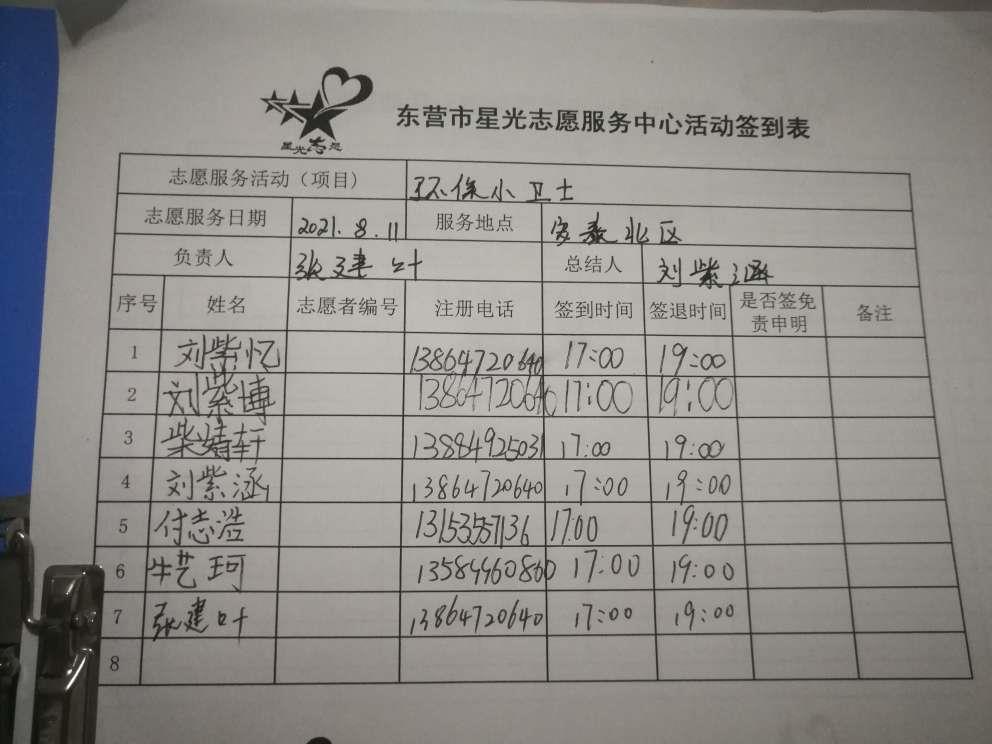 星光志愿
东营市星光志愿服务中心活动签到表
志愿服务活动（项目） 环保小卫士
志愿服务日期 2021.8.11 服务地点 安泰北区
负责人 张建叶 总结人 刘紫涵
序号 姓名 志愿者编号 注册电话 签到时间 签退时间 是否签免责申明 备注
1 刘紫忆 13864720640 17:00 19:00
2 刘紫博 13864720640 17:00 19:00
3 柴婧轩 13884925031 17:00 19:00
4 刘紫涵 13864720640 17:00 19:00
5 付志浩 13153557136 17:00 19:00
6 牛艺珂 13584460860 17:00 19:00
7 张建叶 13864720640 17:00 19:00
8